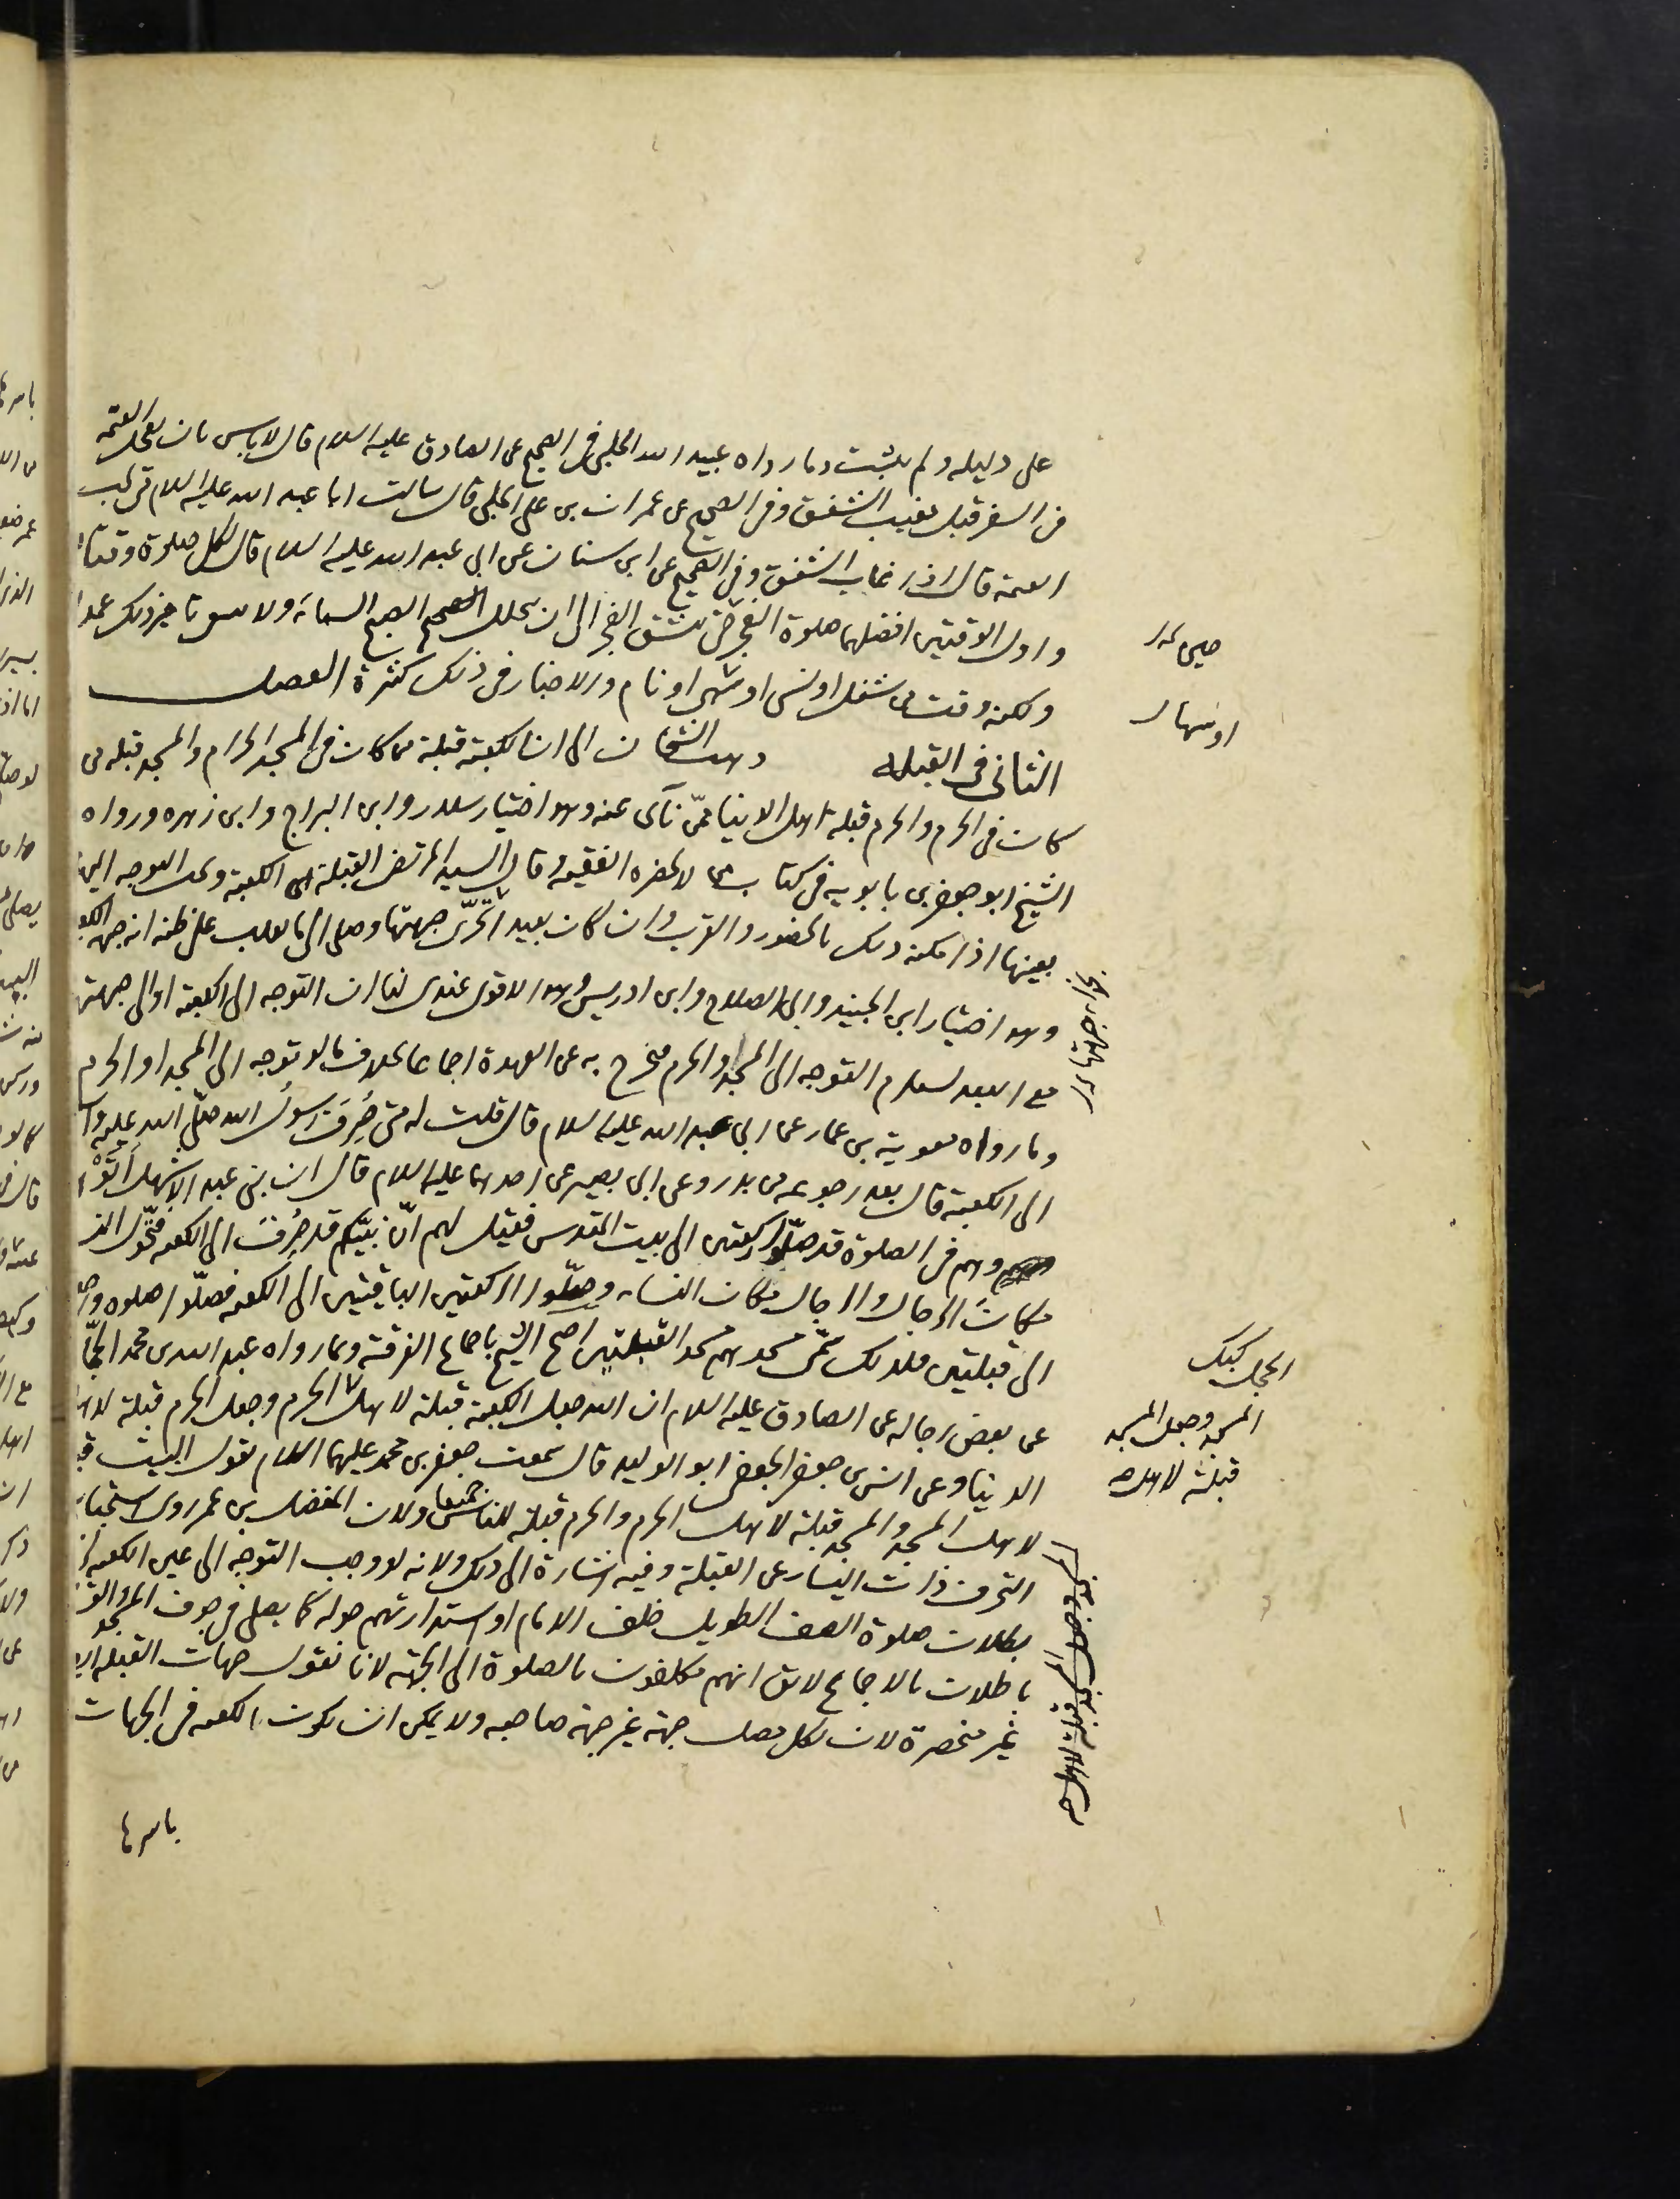 على دليله ولم يثبت وما رواه عبيد الله الحلبي في الصحيح عن الصادق عليه السلام قال لا باس بان يعجل العتمة
في السفر قبل مغيب الشفق وفي الصحيح عن عمران بن علي الحلبي قال سالت ابا عبد الله عليه السلام متى تجب
العتمة قال اذا غاب الشفق وفي الصحيح عن ابن سنان عن ابي عبد الله عليه السلام قال لكل صلوة وقتان
واول الوقتين افضلهما صلوة الفجر حين ينشق الفجر الى ان يتجلل الصبح السماء ولا ينبغي تاخير ذلك عمدا
ولكنه وقت من شغل او نسى او سهى او نام والاخبار في ذلك كثيرة الفصل
الثاني في القبلة ذهب الشيخان الى ان الكعبة قبلة من كان في المسجد الحرام والمسجد قبلة من
كان في الحرم والحرم قبلة اهل الدنيا ممن نآى عنه وهو اختيار سلار وابن البراج وابن زهره ورواه
الشيخ ابو جعفر بن بابويه في كتاب من لا يحضره الفقيه وقال السيد المرتضى القبلة هي الكعبة ويجب التوجه اليها
بعينها اذا امكنه ذلك بالحضور والقرب وان كان بعيدا تحرى جهتها وصلى الى ما يغلب على ظنه انه جهة الكعبة
وهو اختيار ابن الجنيد وابي الصلاح وابن ادريس وهو الاقوى عندي لنا ان التوجه الى الكعبة او الى جهتها
مع البعد يستلزم التوجه الى المسجد والحرم فيخرج به عن العهدة اجماعا بخلاف ما لو توجه الى المسجد او الحرم
وما رواه معوية بن عمار عن ابي عبد الله عليه السلام قال قلت له متى صُرِفَ رسول الله صلّى الله عليه وآله
الى الكعبة قال بعد رجوعه من بدر وعن ابي بصير عن احدهما عليه السلام قال ان بني عبد الاشهل اَتَوْهُم
وهم في الصلوة قد صلّوا ركعتين الى بيت المقدس فقيل لهم انّ نبيّكم قد صُرِفَ الى الكعبة فتحوّل النساء
مكانَ الرجال والرجال مكان النساء وصلّوا الركعتين الباقيتين الى الكعبة فصلّوا صلوة واحدة
الى قبلتين فلذلك سمّى مسجدهم مسجد القبلتين احتج الشيخ باجماع الفرقة وبما رواه عبد الله بن محمد الحجّال
عن بعض رجاله عن الصادق عليه السلام ان الله جعل الكعبة قبلة لاهل الحرم وجعل الحرم قبلة لاهل
الدنيا وعن بشر بن جعفر الجعفي ابو الوليد قال سمعت جعفر بن محمد عليهما السلام يقول البيت قبلة
لاهل المسجد والمسجد قبلة لاهل الحرم والحرم قبلة للناس جميعا ولان المفضل بن عمر روى استحباب
التحرف ذات اليسار عن القبلة وفيه اشارة الى ذلك ولانه لو وجب التوجه الى عين الكعبة لزم
بطلان صلوة الصف الطويل خلف الامام او استدارتهم حوله كما يصلى في جوف المسجد والقسمان
باطلان بالاجماع لا يق انهم مكلفون بالصلوة الى الجهة لانا نقول جهات القبلة ايضا
غير منحصرة لان لكل مصل جهة غير جهة صاحبه ولا يمكن ان يكون الكعبة في الجهات
باسرها
او سها
المسجد وجعل المسجد
قبلة لاهل